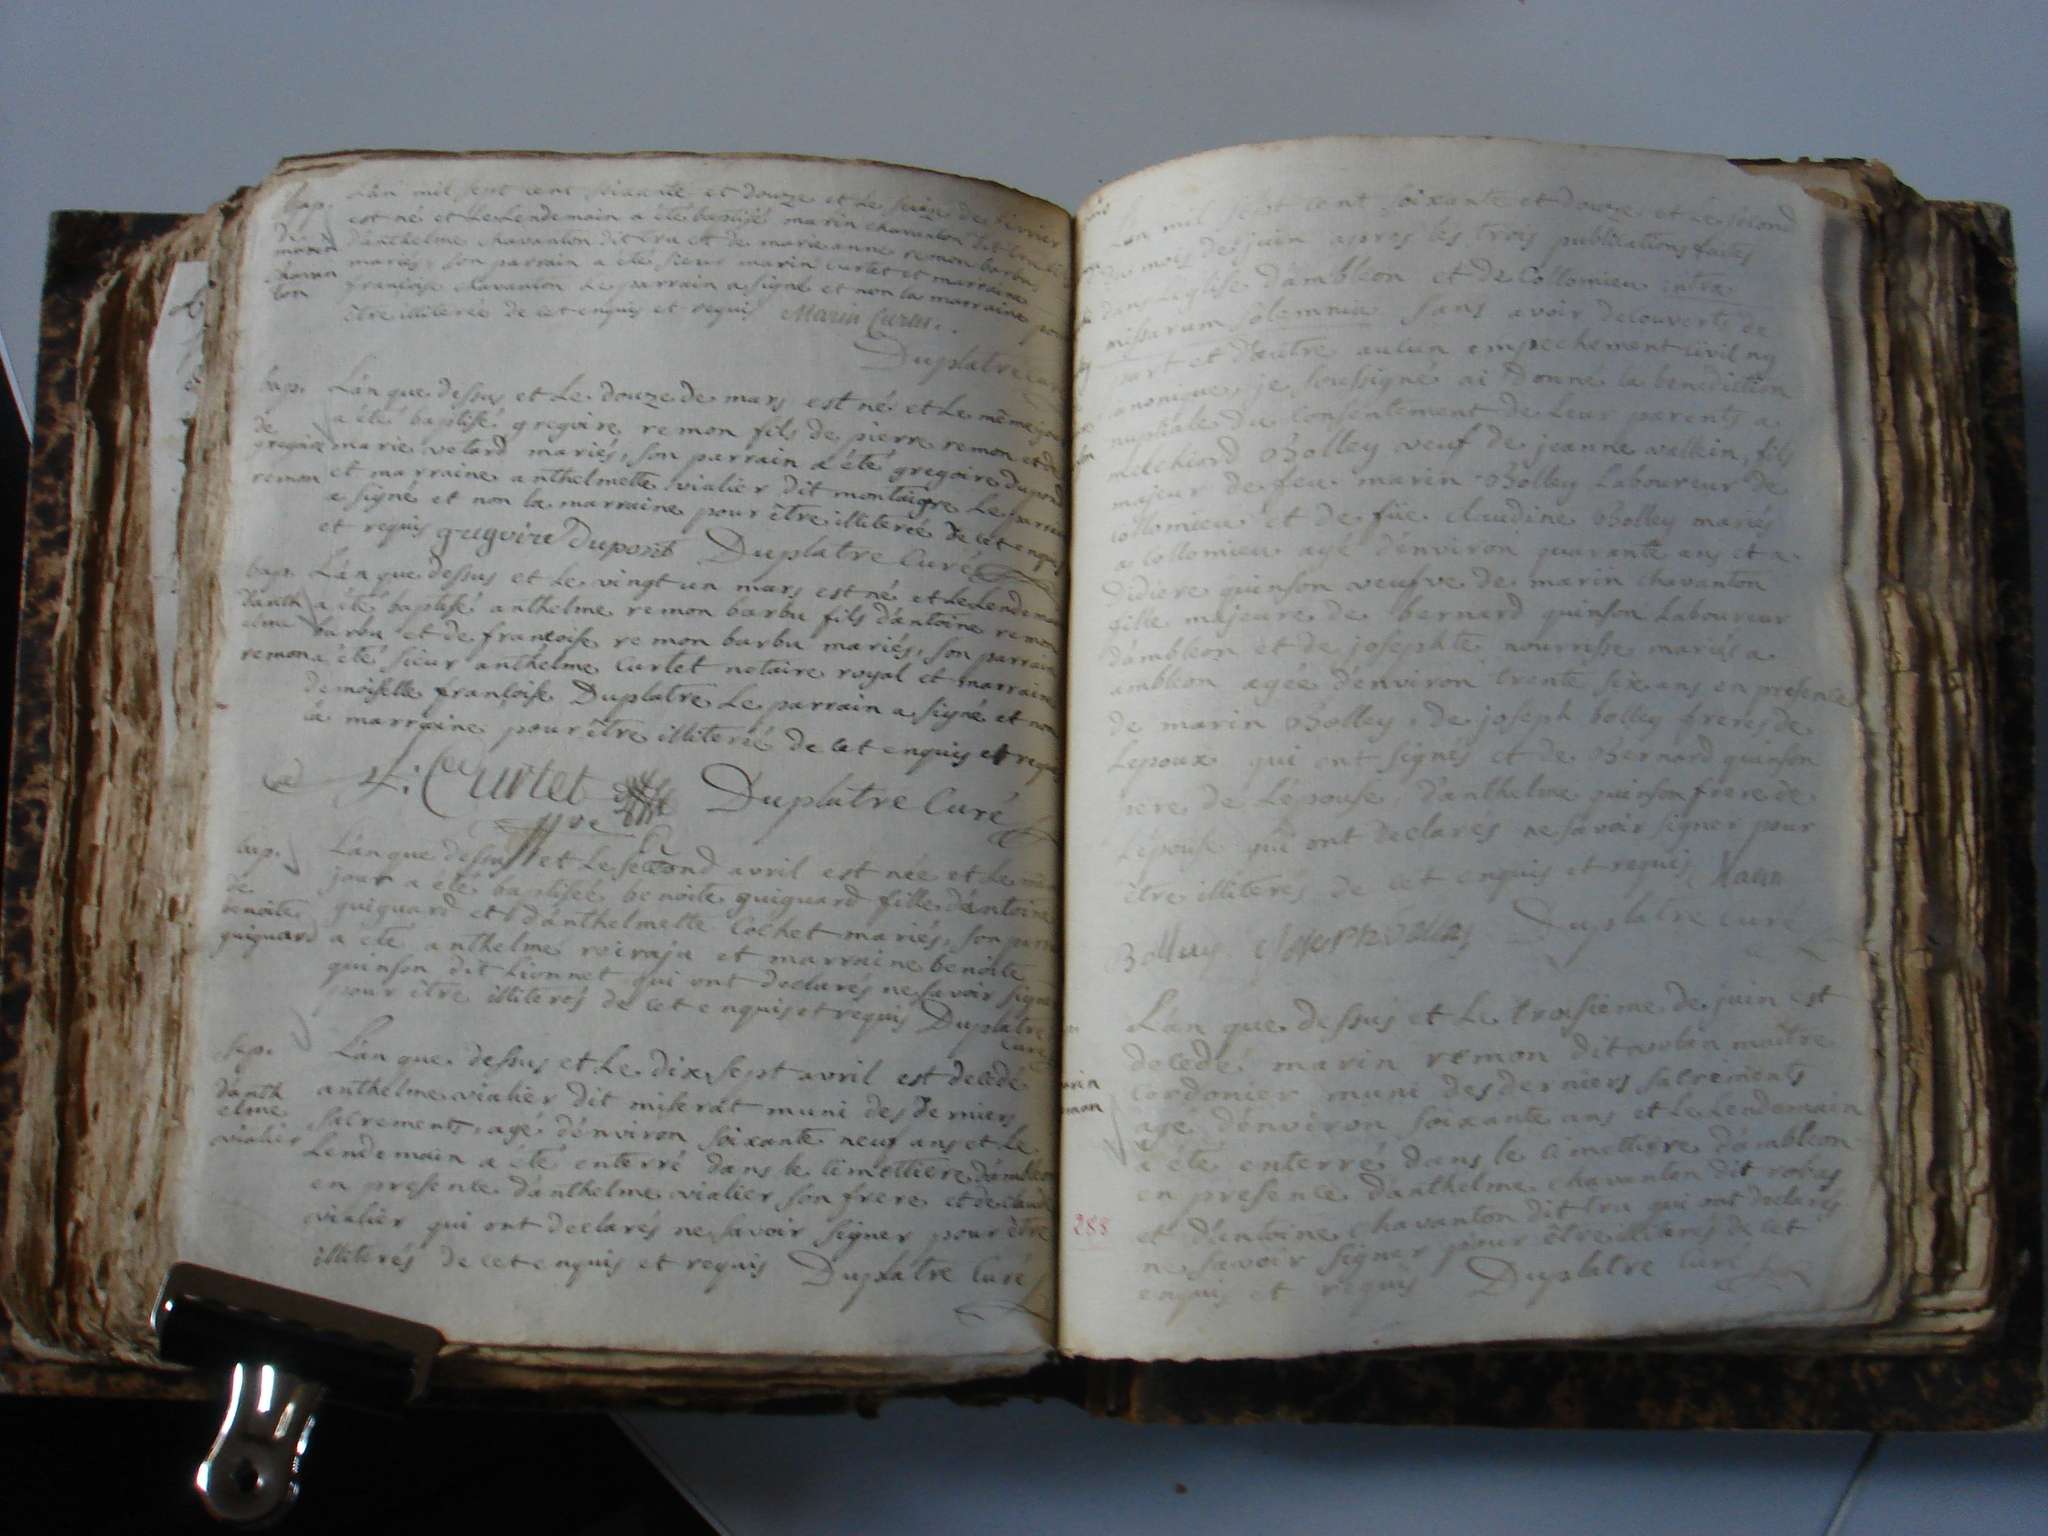 bap.
De
marin
chavan
ton
L'an mil sept cent soixante et douze et le seize de fevrier
est né et le lendemain a été baptisé marin chavanton dit tru
d'anthelme chavanton dit tru et de marie anne remon barbu
mariés, son parrain a été sieur marin curtet et marraine
francoise chavanton le parrain a signé et non la marraine pour
être illiterée de cet enquis et requis Marin Curtet
Duplatre curé
bap.
de
gregoire
remon
L'an que dessus et le douze de mars est né et le même jour
a été baptisé gregoire remon fils de pierre remon et de
marie velard mariés, son parrain a été gregoire dupond
et marraine anthelmette vialier dit montaigre le parrain
a signé et non la marraine pour être illiterée de cet enquis
et requis gregoire Dupont Duplatre Curé
bap.
d'anth
elme
remon
L'an que dessus et le vingt un mars est né et le lendemain
a été baptisé anthelme remon barbu fils d'antoine remon
barbu et de francoise remon barbu mariés, son parrain
a été sieur anthelme Curtet notaire royal et marraine
demoiselle francoise Duplatre le parrain a signé et non
la marraine pour être illiterée de cet enquis et requis
Curtet Duplatre Curé
bap.
de
benoite
guiguard
L'an que dessus et le second avril est née et le même
jour a été baptisée benoite guiguard fille d'antoine
guiguard et d'anthelmette Cochet mariés, son parrain
a été anthelme reiraja et marraine benoite
quinson dit Lionnet qui ont declarés ne savoir signer
pour être illiterés de cet enquis et requis Duplatre
curé
sep.
d'anth
elme
vialier
L'an que dessus et le dix sept avril est decedé
anthelme vialier dit miserat muni des derniers
sacrements, agé d'environ soixante neuf ans et le
lendemain a été enterré dans le cimettiere d'ambléon
en presence d'anthelme vialier son frere et de claude
vialier qui ont declarés ne savoir signer pour être
illiterés de cet enquis et requis Duplatre Curé
L'an mil sept cent soixante et douze et le second
du mois de juin apres les trois publications faites
dans l'eglise d'ambléon et de Collomieu intra
missarum solemnia sans avoir decouverts de
part et d'autre aucun empechement civil ny
canonique, je soussigné ai donné la benediction
nuptiale du consentement de leur parents a
melchiord Bolley veuf de jeanne wallein, fils
majeur de feu marin Bolley Laboureur de
collomieu et de füe claudine Bolley mariés
a collomieu agé d'environ quarante ans et a
Didiere quinson veusve de marin chavanton
fille majeure de bernard quinson Laboureur
d'ambléon et de josephte nourrisse mariés a
ambléon agée d'environ trente six ans en presence
de marin Bolley, de joseph bolley freres de
Lepoux qui ont signés et de Bernard quinson
pere de Lépouse, d'anthelme quinson frere de
Lépouse qui ont declarés ne savoir signer pour
être illiterés de cet enquis et requis Marin
Bolley joseph bolley Duplatre Curé
arin
emon
L'an que dessus et le troisieme de juin est
decedé marin remon dit volan maître
Cordonier muni des derniers sacrements
agé d'environ soixante ans et le lendemain
a été enterré dans le cimettiere d'ambléon
en presence d'anthelme chavanton dit robas
et d'antoine chavanton dit tru qui ont declarés
ne savoir signer pour être illiterés de cet
enquis et requis Duplatre Curé
288